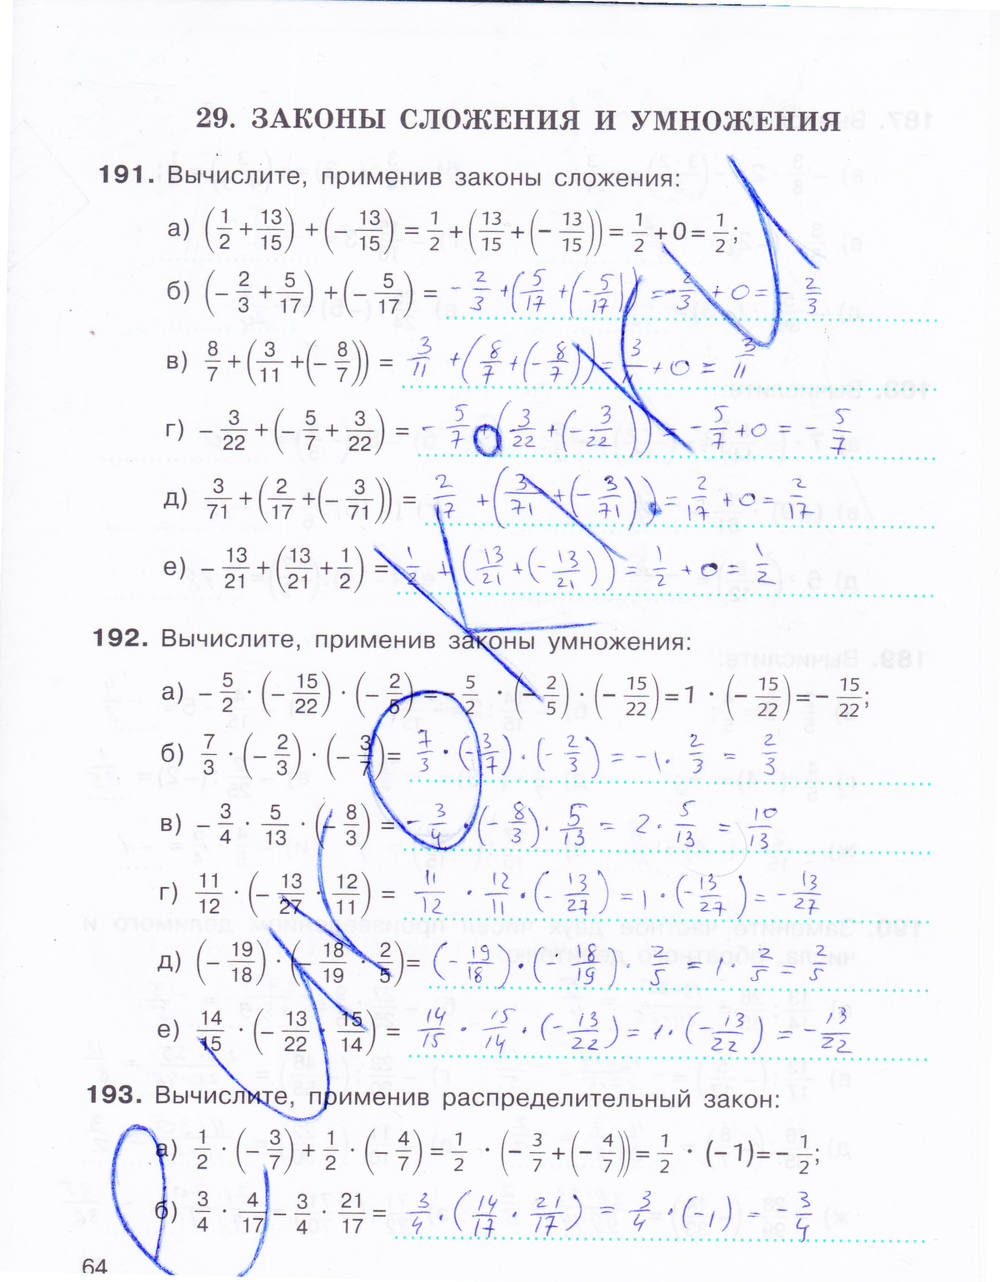 29. ЗАКОНЫ СЛОЖЕНИЯ И УМНОЖЕНИЯ
191. Вычислите, применив законы сложения:
а) (1/2 + 13/15) + (− 13/15) = 1/2 + (13/15 + (− 13/15)) = 1/2 + 0 = 1/2;
б) (− 2/3 + 5/17) + (− 5/17) = − 2/3 + (5/17 + (− 5/17)) = − 2/3 + 0 = − 2/3
в) 8/7 + (3/11 + (− 8/7)) = 3/11 + (8/7 + (− 8/7)) = 3/11 + 0 = 3/11
г) − 3/22 + (− 5/7 + 3/22) = − 5/7 + (3/22 + (− 3/22)) = − 5/7 + 0 = − 5/7
д) 3/71 + (2/17 + (− 3/71)) = 2/17 + (3/71 + (− 3/71)) = 2/17 + 0 = 2/17
е) − 13/21 + (13/21 + 1/2) = 1/2 + (13/21 + (− 13/21)) = 1/2 + 0 = 1/2
192. Вычислите, применив законы умножения:
а) − 5/2 · (− 15/22) · (− 2/5) = − 5/2 · (− 2/5) · (− 15/22) = 1 · (− 15/22) = − 15/22;
б) 7/3 · (− 2/3) · (− 3/7) = 7/3 · (− 3/7) · (− 2/3) = −1 · 2/3 = 2/3
в) − 3/4 · 5/13 · (− 8/3) = − 3/4 · (− 8/3) · 5/13 = 2 · 5/13 = 10/13
г) 11/12 · (− 13/27 · 12/11) = 11/12 · 12/11 · (− 13/27) = 1 · (− 13/27) = − 13/27
д) (− 19/18) · (− 18/19 · 2/5) = (− 19/18) · (− 18/19) · 2/5 = 1 · 2/5 = 2/5
е) 14/15 · (− 13/22 · 15/14) = 14/15 · 15/14 · (− 13/22) = 1 · (− 13/22) = − 13/22
193. Вычислите, применив распределительный закон:
а) 1/2 · (− 3/7) + 1/2 · (− 4/7) = 1/2 · (− 3/7 + (− 4/7)) = 1/2 · (−1) = − 1/2;
б) 3/4 · 4/17 − 3/4 · 21/17 = 3/4 · (14/17 · 21/17) = 3/4 · (−1) = − 3/4
64